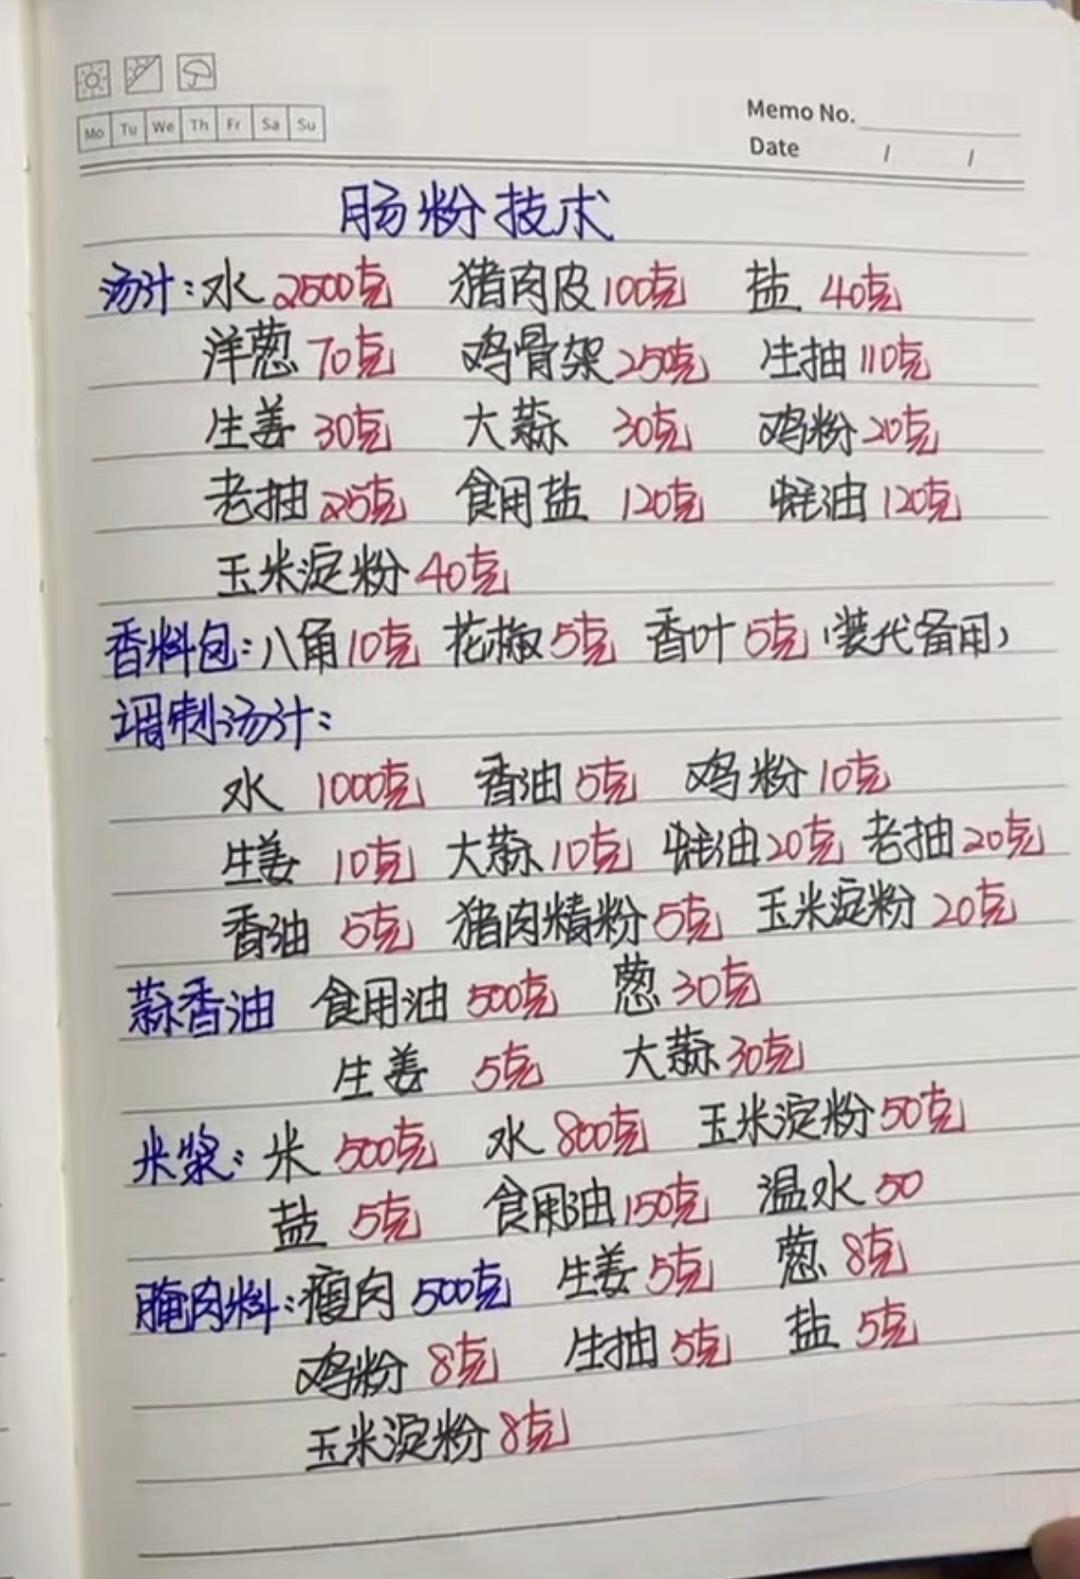 Mo Tu We Th Fr Sa Su
Memo No.
Date / /
肠粉技术
汤汁：水2500克 猪肉皮100克 盐 40克
洋葱70克 鸡骨架250克 生抽110克
生姜 30克 大蒜 30克 鸡粉20克
老抽25克 食用盐 120克 蚝油120克
玉米淀粉40克
香料包：八角10克 花椒5克 香叶5克（装代备用）
调制汤汁：
水 1000克 香油5克 鸡粉10克
生姜 10克 大蒜10克 蚝油20克 老抽20克
香油 5克 猪肉精粉5克 玉米淀粉20克
蒜香油 食用油500克 葱30克
生姜 5克 大蒜30克
米浆：米 500克 水800克 玉米淀粉50克
盐 5克 食用油150克 温水50
腌肉料：瘦肉500克 生姜5克 葱8克
鸡粉 8克 生抽5克 盐 5克
玉米淀粉8克